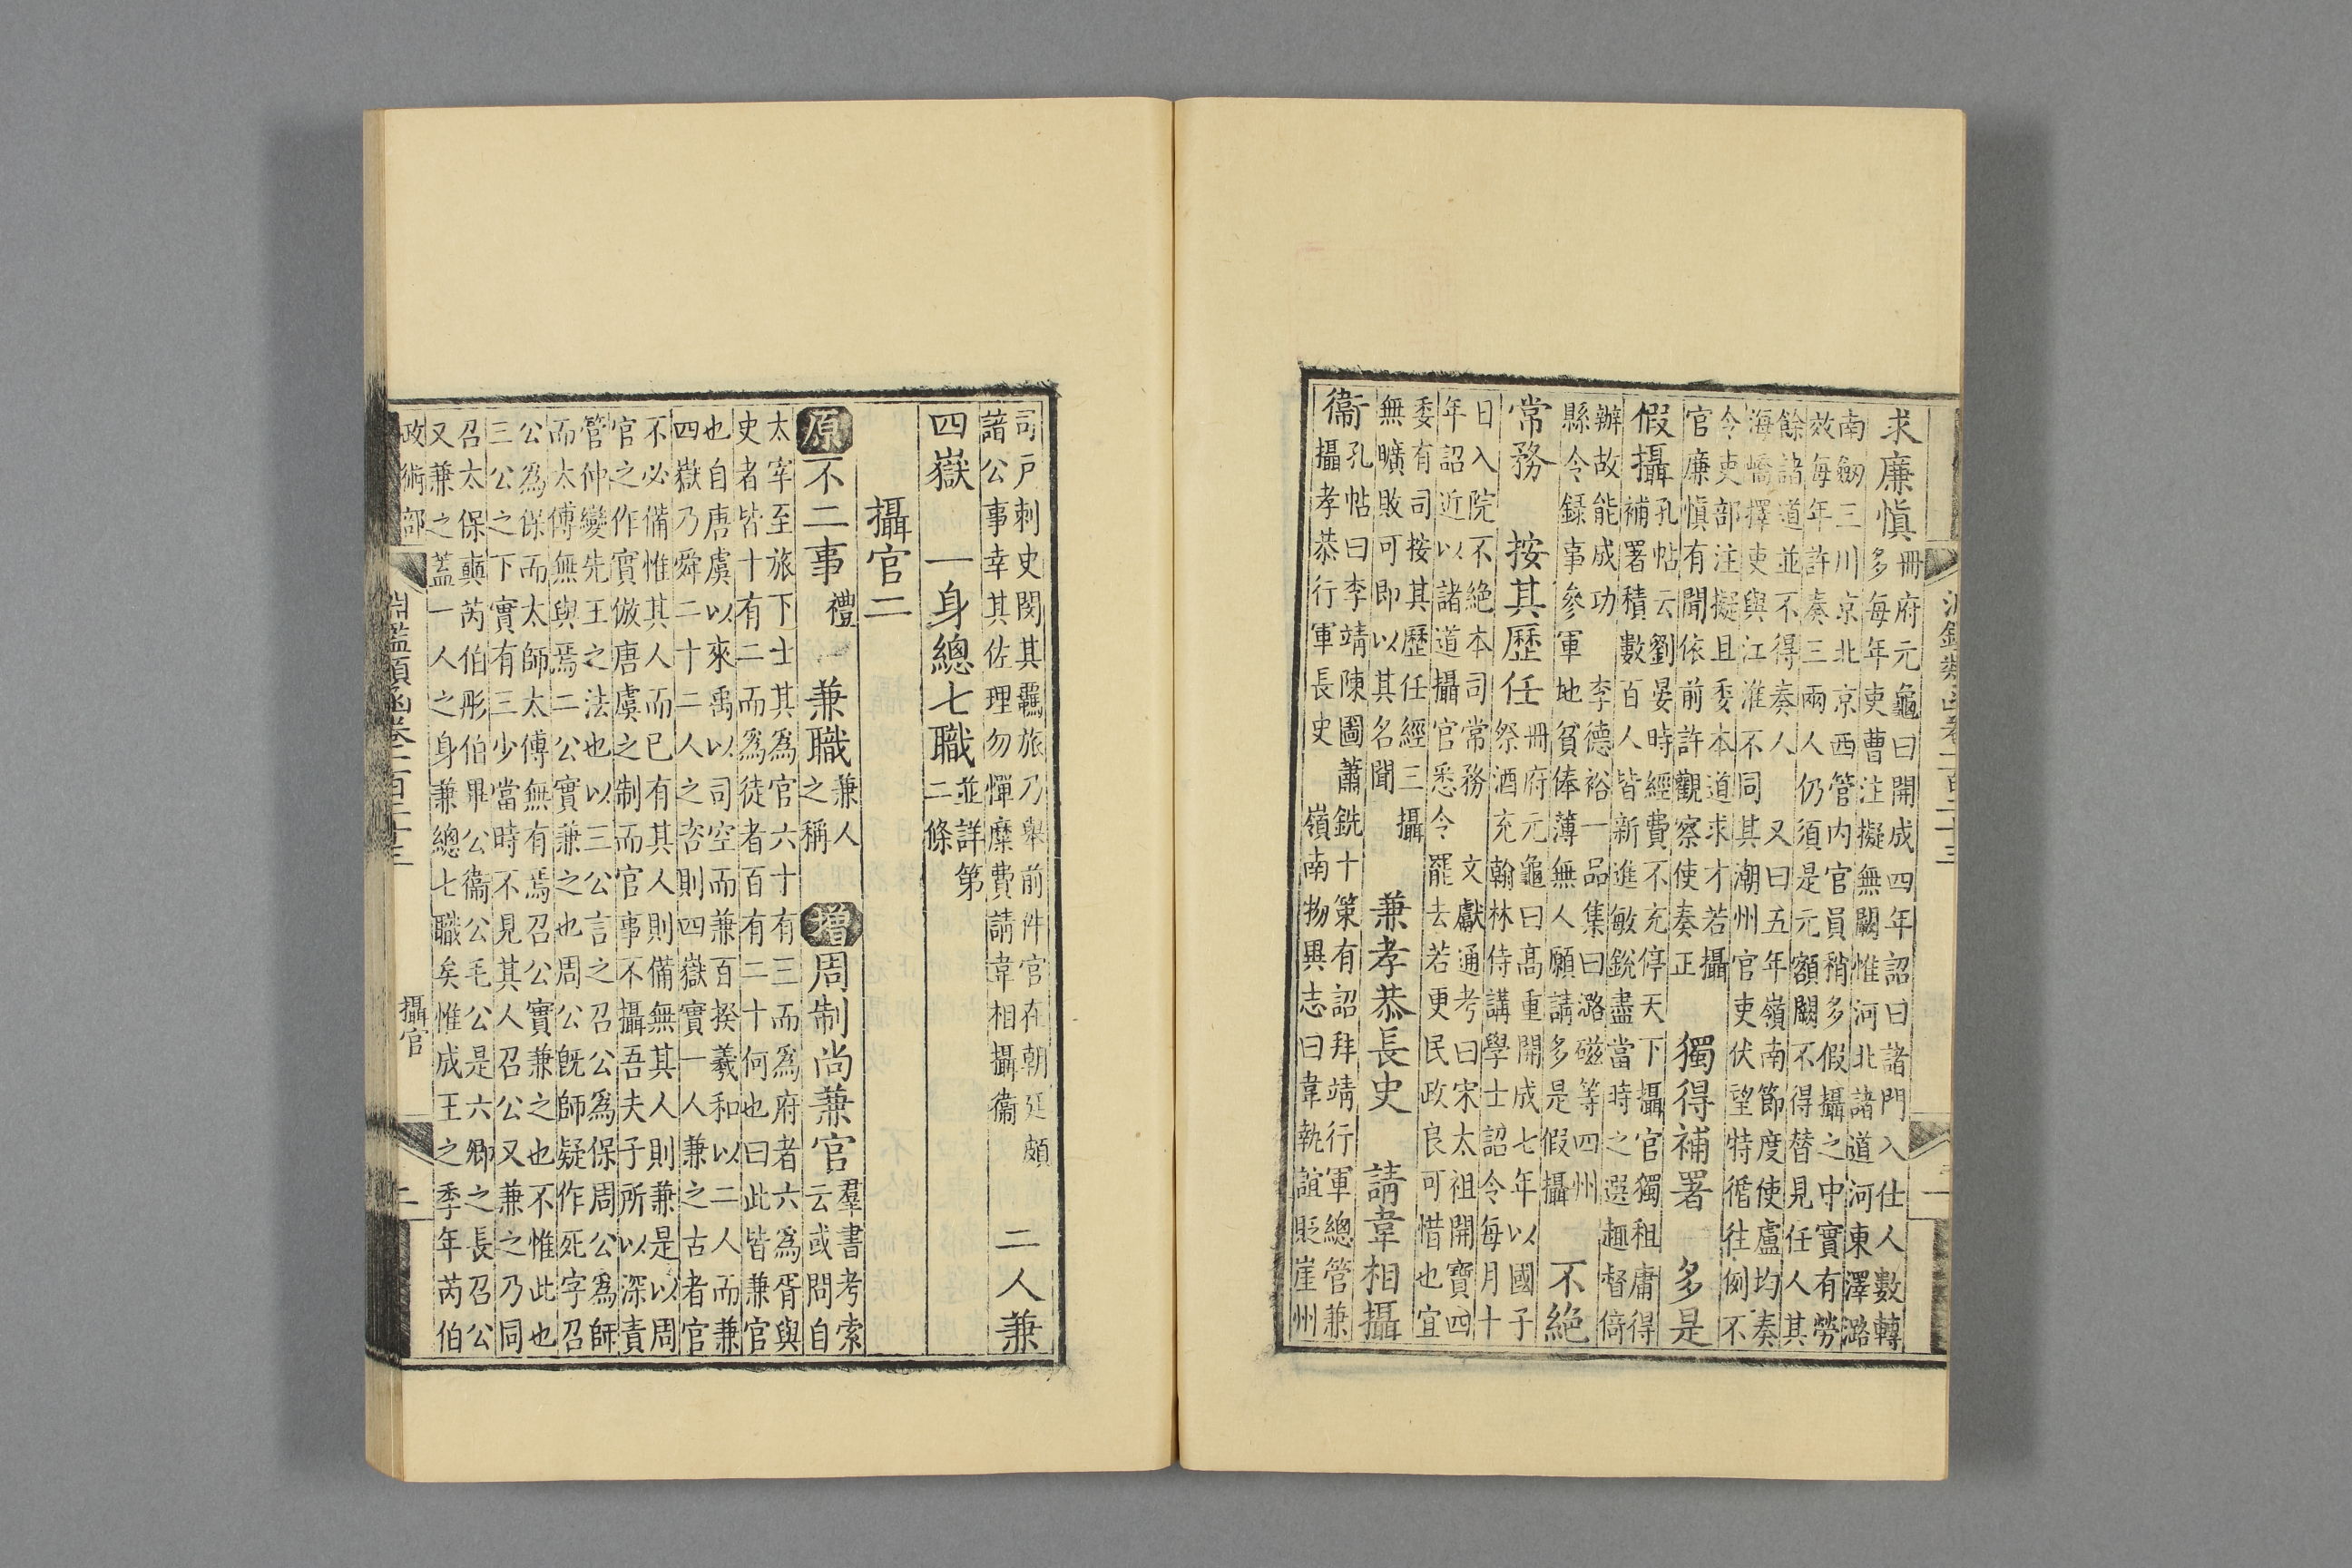 求廉慎
冊府元龜曰開成四年詔曰諸門入仕人數轉
多每年吏曹注擬無闕惟河北諸道河東澤潞
南劒三川京北京西管内官員稍多假攝之中實有勞
效每年許奏三兩人仍須是元額闕不得替見任人其
餘諸道並不得奏人　又曰五年嶺南節度使盧均奏
海嶠擇吏與江淮不同其潮州官吏伏望特循往例不
令吏部注擬且委本道求才若攝
官廉慎有聞依前許觀察使奏正
獨得補署　多是
假攝
孔帖云劉晏時經費不充停天下攝官獨租庸得
補署積數百人皆新進敏銳盡當時之選趣督倚
辦故能成功　李德裕一品集曰潞磁等四州
縣令錄事參軍地貧俸薄無人願請多是假攝
不絶
常務　按其歷任
冊府元龜曰高重開成七年以國子
祭酒充翰林侍講學士詔令每月十
日入院不絶本司常務　文獻通考曰宋太祖開寶四
年詔近以諸道攝官悉令罷去若更民政良可惜也宜
委有司按其歷任經三攝
無曠敗可即以其名聞
兼孝恭長史　請韋相攝
衞
孔帖曰李靖陳圖蕭銑十策有詔拜靖行軍總管兼
攝孝恭行軍長史　嶺南物異志曰韋執誼貶崖州
司戶刺史閔其羈旅乃舉前件官在朝廷頗
諳公事幸其佐理勿憚縻費請韋相攝衞
二人兼
四嶽　一身總七職
並詳第
二條
攝官二
原不二事
禮
兼職
兼人
之稱
增周制尚兼官
羣書考索
云或問自
太宰至旅下士其爲官六十有三而爲府者六爲胥與
史者皆十有二而爲徒者百有二十何也曰此皆兼官
也自唐虞以來禹以司空而兼百揆羲和以二人而兼
四嶽乃舜二十二人之咨則四嶽實一人兼之古者官
不必備惟其人而已有其人則備無其人則兼是以周
官之作實倣唐虞之制而官事不攝吾夫子所以深責
管仲變先王之法也以三公言之召公爲保周公爲師
而太傅無與焉二公實兼之也周公旣師疑作死字召
公爲保而太師太傅無有焉召公實兼之也不惟此也
三公之下實有三少當時不見其人召公又兼之乃同
召太保奭芮伯彤伯畢公衞公毛公是六卿之長召公
又兼之蓋一人之身兼總七職矣惟成王之季年芮伯
政術部
淵鑑類函卷一百二十三
攝官
二